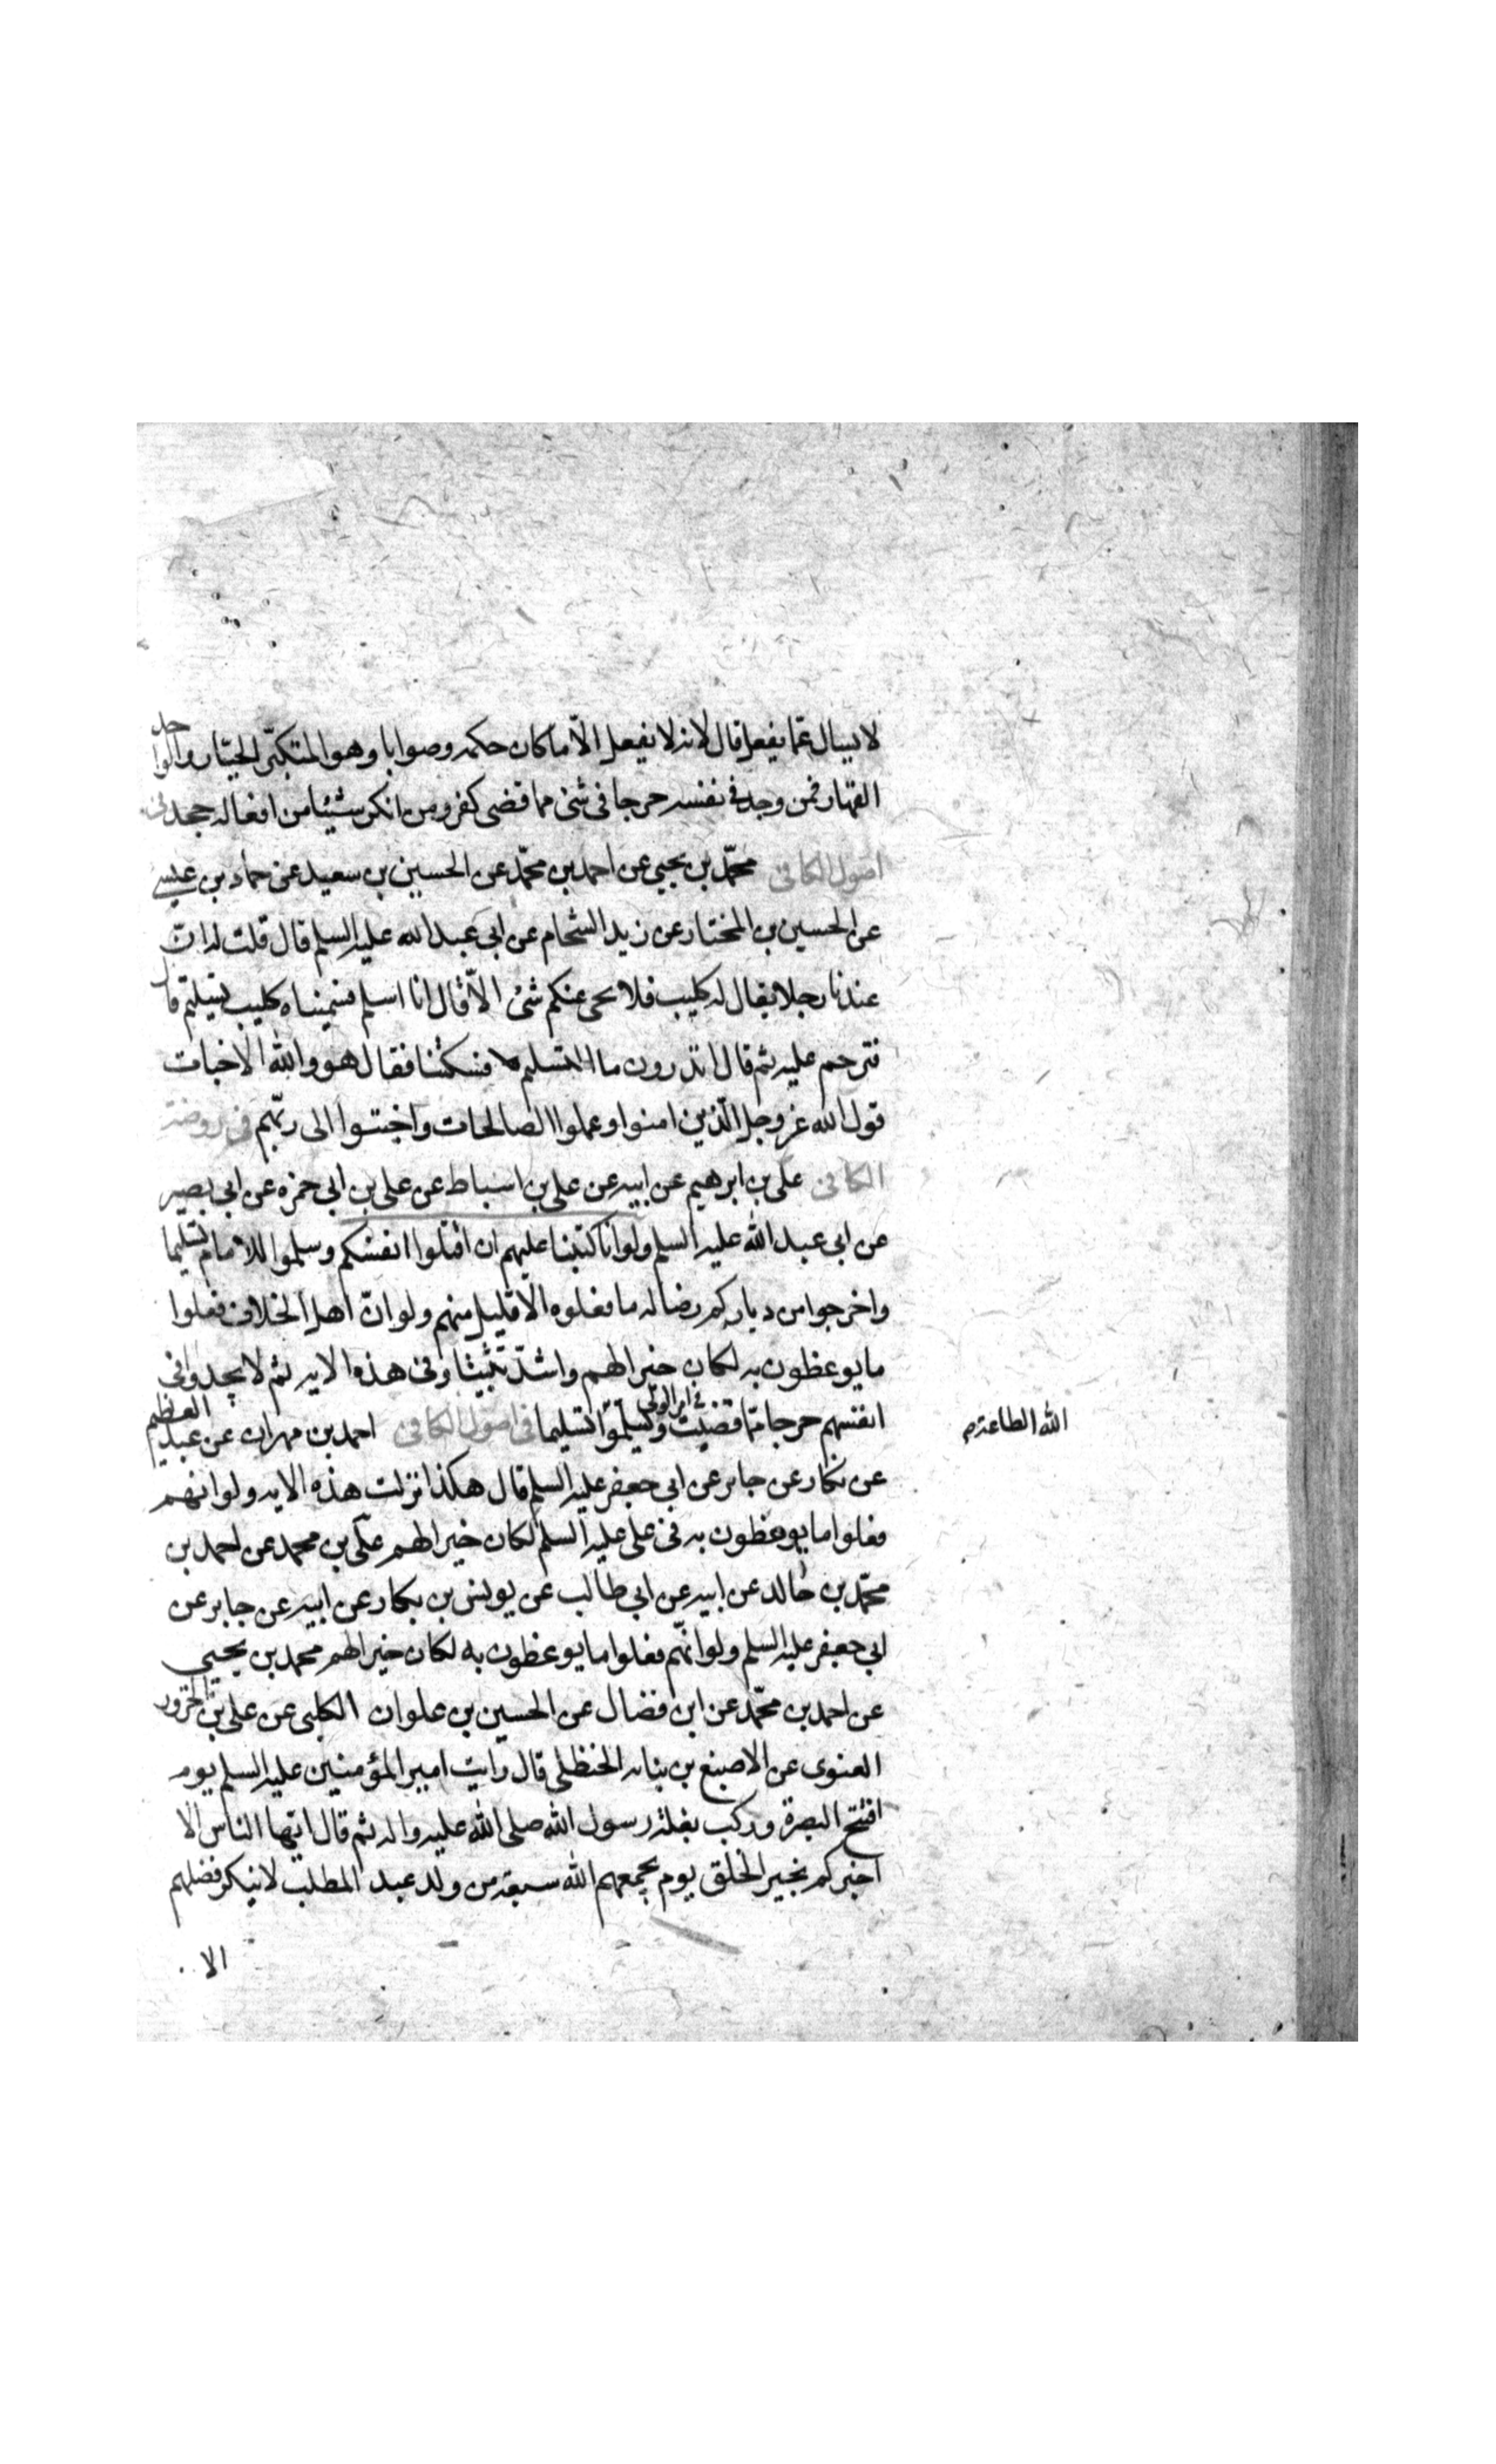 لا يسال عما يفعل قال لانه لا يفعل الا ما كان حكمه وصوابا وهو المتكبر الجبار والواحد
القهار فمن وجد في نفسه حرجا في شئ مما قضى كفر ومن انكر شيئا من افعاله جحد في
اصول الكافي محمّد بن يحيى عن احمد بن محمّد عن الحسين بن سعيد عن حماد بن عيسى
عن الحسين بن المختار عن زيد الشحام عن ابي عبد الله عليه السلم قال قلت له ان
عندنا رجلا يقال له كليب فلا يجي عنكم شئ الّا قال انا اسلم فسميناه كليب تسليم قال
فترحم عليه ثم قال اتدرون ما التسليم فسكتنا فقال هو والله الاخبات
قول الله عز وجل الّذين امنوا وعملوا الصالحات واخبتوا الى ربّهم في روضة
الكافي علي بن ابرهيم عن ابيه عن علي بن اسباط عن علي بن ابي حمزه عن ابي بصير
عن ابي عبد الله عليه السلم ولو انا كتبنا عليهم ان اقتلوا انفسكم وسلموا للامام تسليما
واخرجوا من دياركم رضا له ما فعلوه الّا قليل منهم ولو انّ اهل الخلاف فعلوا
ما يوعظون به لكان خيرا لهم واشدّ تثبيتا وفي هذه الايه ثم لا يجدوا في
انفسهم حرجا ممّا قضيت في امر الوالي ويسلّموا تسليما في اصول الكافي احمد بن مهران عن عبد العظيم
الله الطاعة م
عن بكار عن جابر عن ابي جعفر عليه السلم قال هكذا نزلت هذه الايه ولو انهم
فعلوا ما يوعظون به في علي عليه السلم لكان خيرا لهم علي بن محمد عن احمد بن
محمّد بن خالد عن ابيه عن ابي طالب عن يونس بن بكار عن ابيه عن جابر عن
ابي جعفر عليه السلم ولو انّهم فعلوا ما يوعظون به لكان خيرا لهم محمد بن يحيى
عن احمد بن محمّد عن ابن فضال عن الحسين بن علوان الكلبي عن علي بن الحزور
الغنوي عن الاصبغ بن نباته الحنظلي قال رايت امير المؤمنين عليه السلم يوم
افتتح البصرة وركب بغلة رسول الله صلى الله عليه واله ثم قال ايّها الناس الا
اخبركم بخير الخلق يوم يجمعهم الله سبعة من ولد عبد المطلب لا ينكر فضلهم
الا